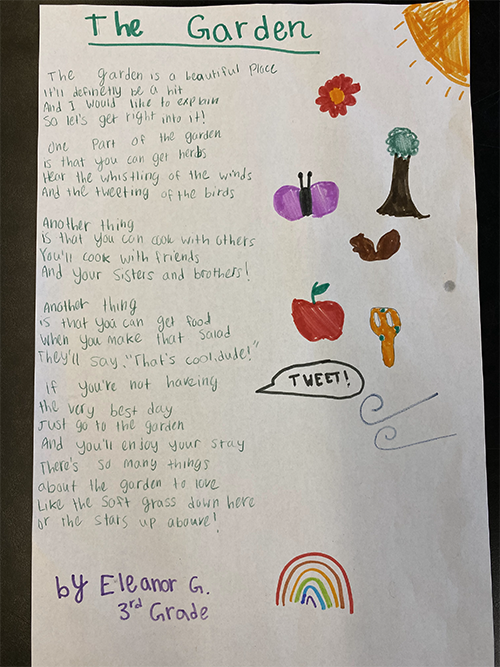 The Garden
The garden is a beautiful Place
It'll definetly be a hit
And I would like to explain
So let's get right into it!
One Part of the garden
is that you can get herbs
Hear the whistling of the winds
And the tweeting of the birds
Another thing
is that you can cook with others
You'll cook with friends
And your sisters and brothers!
Another thing
is that you can get food
When you make that salad
They'll say, "That's cool, dude!"
If you're not haveing
the very best day
Just go to the garden
And you'll enjoy your stay
There's so many things
about the garden to love
Like the soft grass down here
or the stars up abouve!
TWEET!
by Eleanor G.
3rd Grade